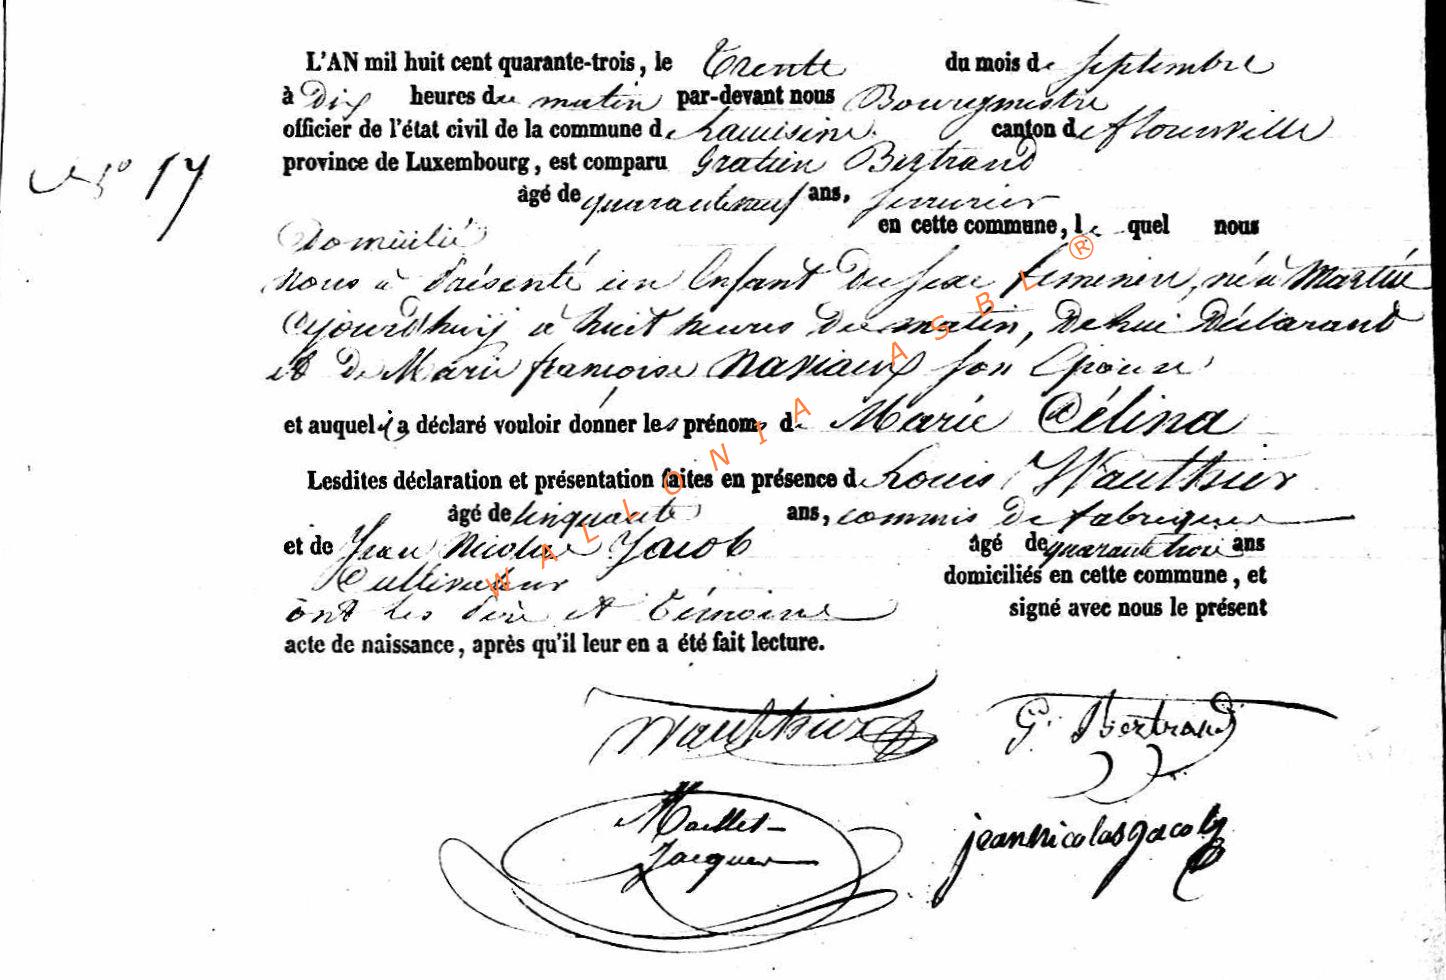 L'AN mil huit cent quarante-trois, le Trente du mois de Septembre
à Dix heures du matin par-devant nous Bourgmestre
officier de l'état civil de la commune de canton de florenville
province de Luxembourg, est comparu Gratien Bertrand
N° 17
âgé de quarante neuf ans, serrurier
Domicilié en cette commune, le quel nous
nous à présenté un Enfant du sexe feminin, né à Martué
ajourd'huij à huit heures du matin, De lui Déclarant
et De Marie françoise Naviaux son Epouse
et auquel il a déclaré vouloir donner les prénoms de Marie Célina
Lesdites déclaration et présentation faites en présence de Louis Wauthier
âgé de cinquante ans, commis De fabrique
et de Jean Nicolas Jacob âgé de quarante trois ans
Cultivateur domiciliés en cette commune, et
ont les père et témoins signé avec nous le présent
acte de naissance, après qu'il leur en a été fait lecture.
Wauthier G. Bertrand
Maillet
Jacques jean nicolas Jacob
WALLONIA ASBL ®